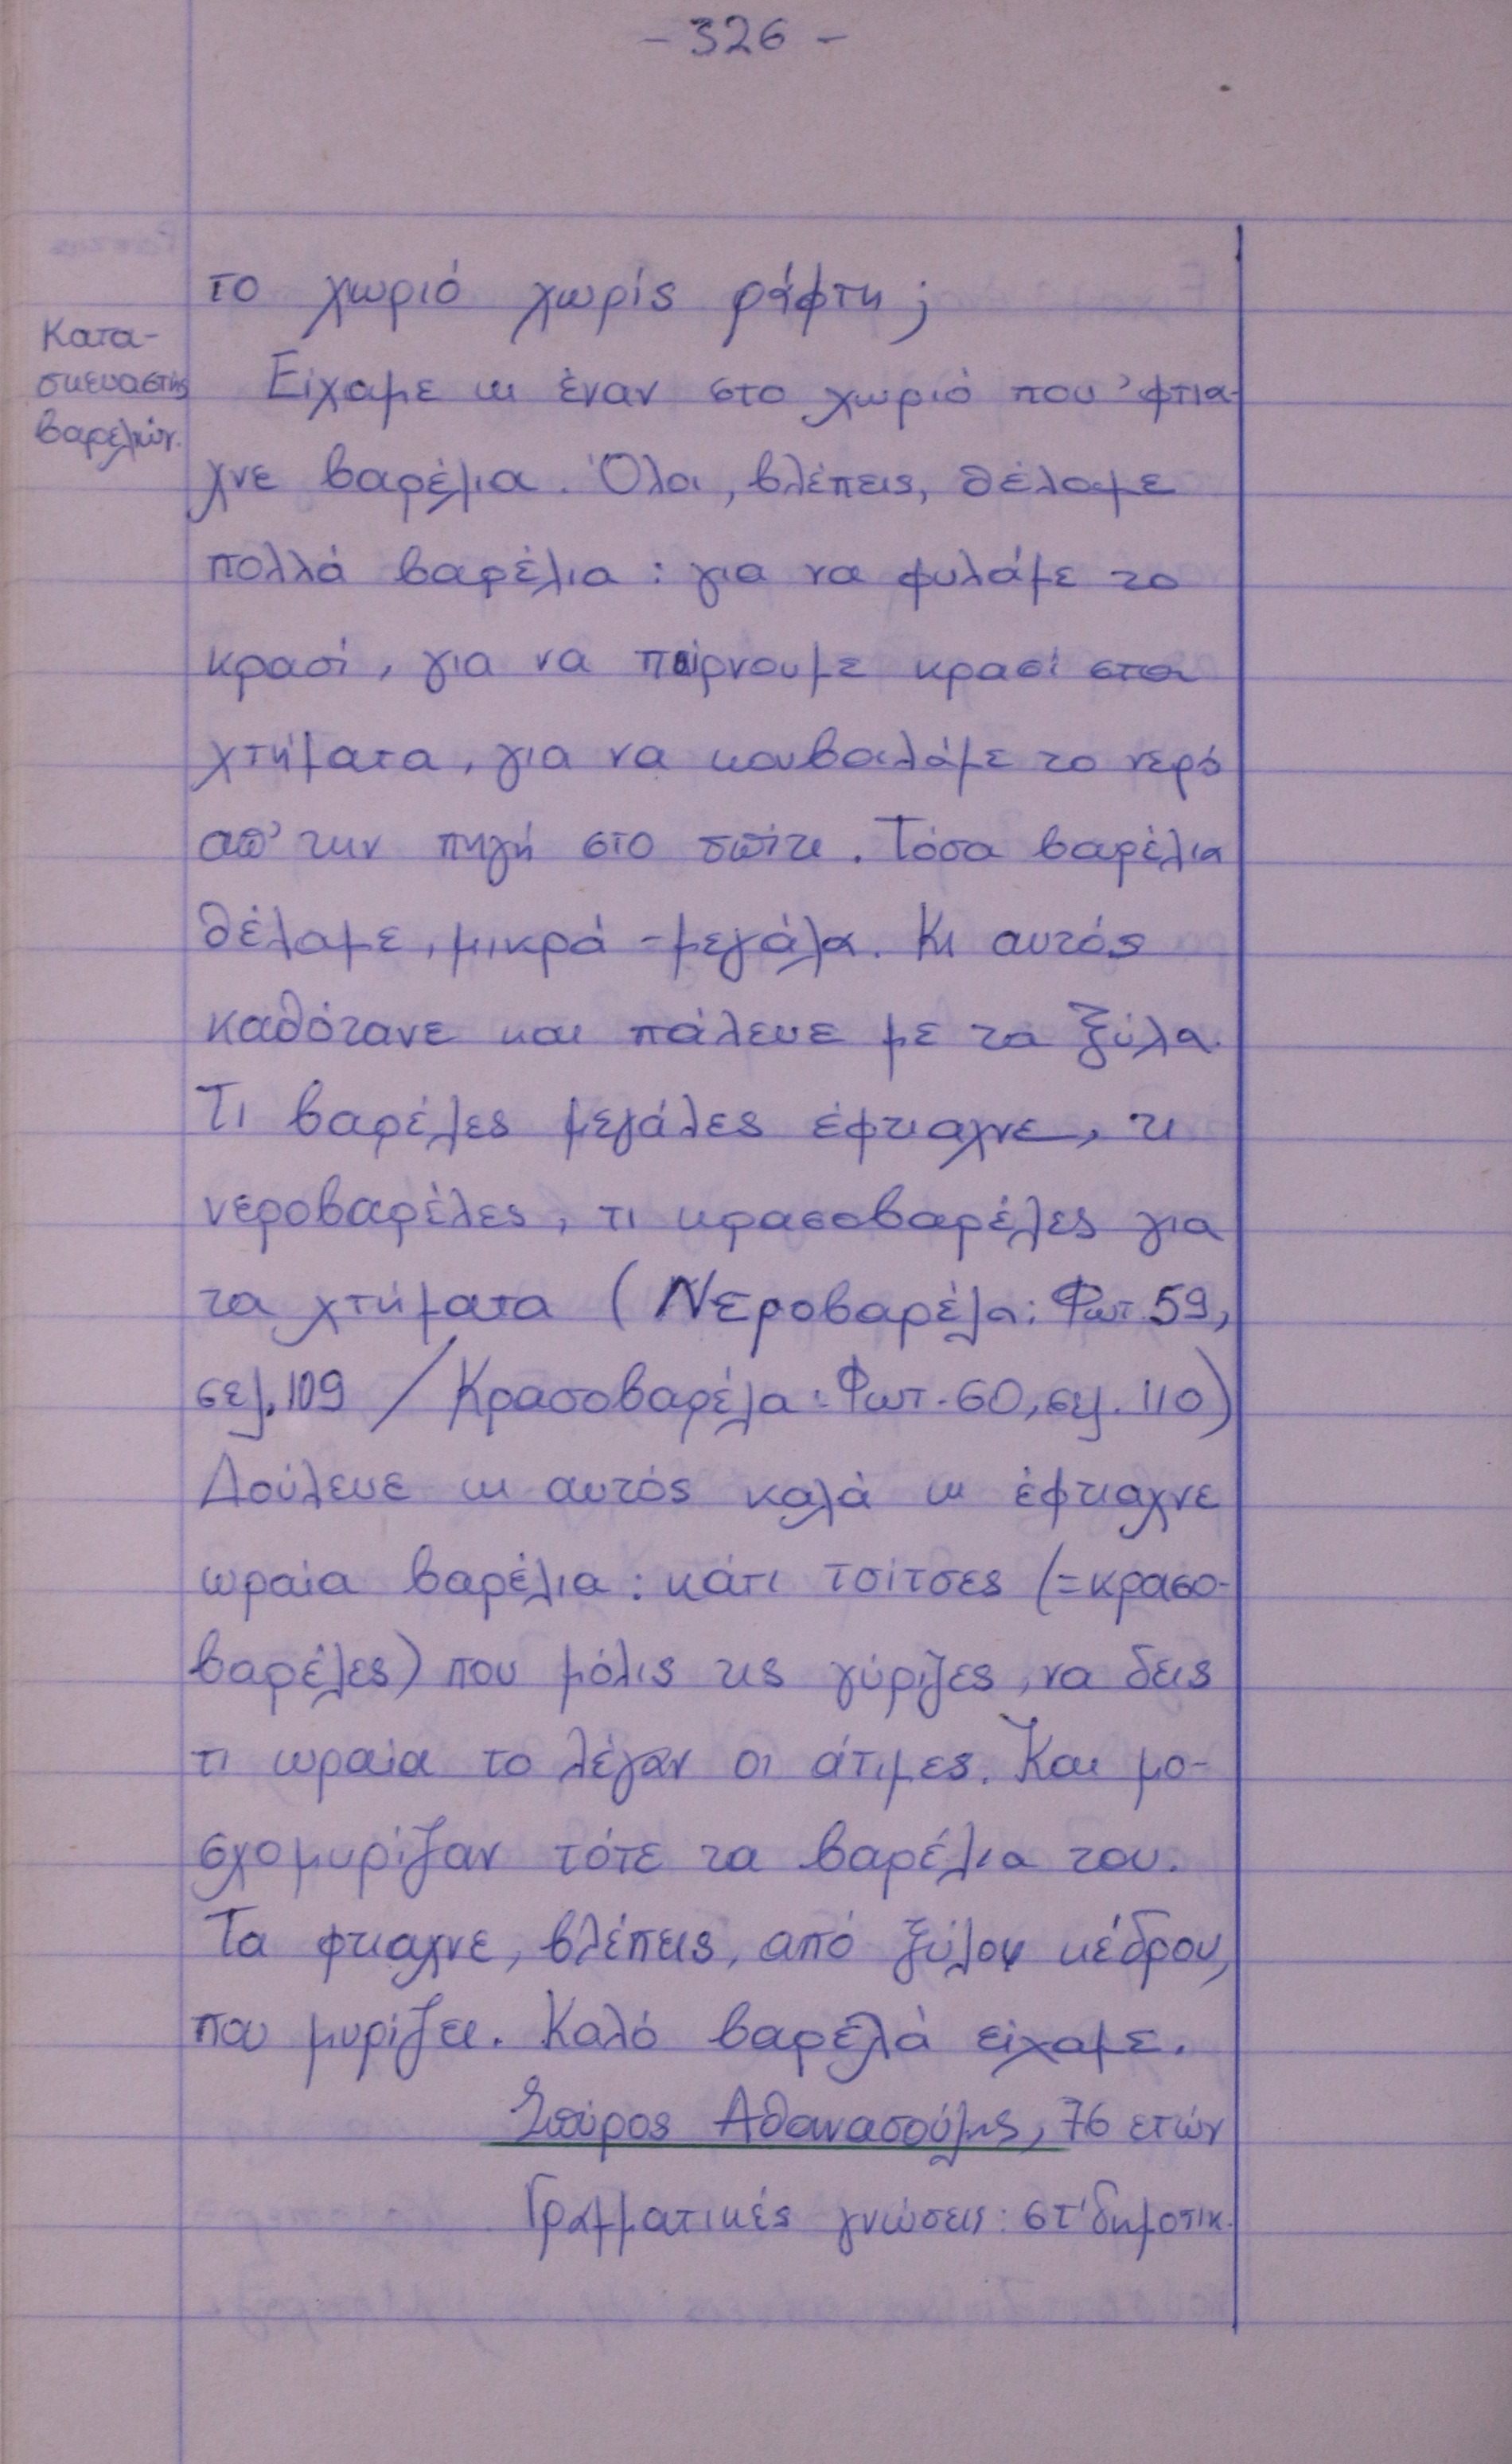 - 326 -
το χωριό χωρίς ράφτη;
Κατα-
σκευαστής
βαρελιών.
Είχαμε κι έναν στο χωριό που 'φτια-
χνε βαρέλια. Όλοι, βλέπεις, θέλαμε
πολλά βαρέλια: για να φυλάμε το
κρασί, για να παίρνουμε κρασί στα
χτήματα, για να κουβαλάμε το νερό
απ' την πηγή στο σπίτι. Τόσα βαρέλια
θέλαμε, μικρά - μεγάλα. Κι αυτός
καθότανε και πάλευε με τα ξύλα.
Τι βαρέλες μεγάλες έφτιαχνε, τι
νεροβαρέλες, τι κρασοβαρέλες για
τα χτήματα (Νεροβαρέλα: Φωτ. 59,
σελ. 109 / Κρασοβαρέλα: Φωτ. 60, σελ. 110)
Δούλευε κι αυτός καλά κι έφτιαχνε
ωραία βαρέλια: κάτι τσίτσες (=κρασο-
βαρέλες) που μόλις τις γύριζες, να δεις
τι ωραία το λέγαν οι άτιμες. Και μο-
σχομυρίζαν τότε τα βαρέλια του.
Τα φτιαχνε, βλέπεις, από ξύλου κέδρου,
που μυρίζει. Καλό βαρελά είχαμε.
Σπύρος Αθανασούλης, 76 ετών
Γραμματικές γνώσεις: στ' δημοτικ.